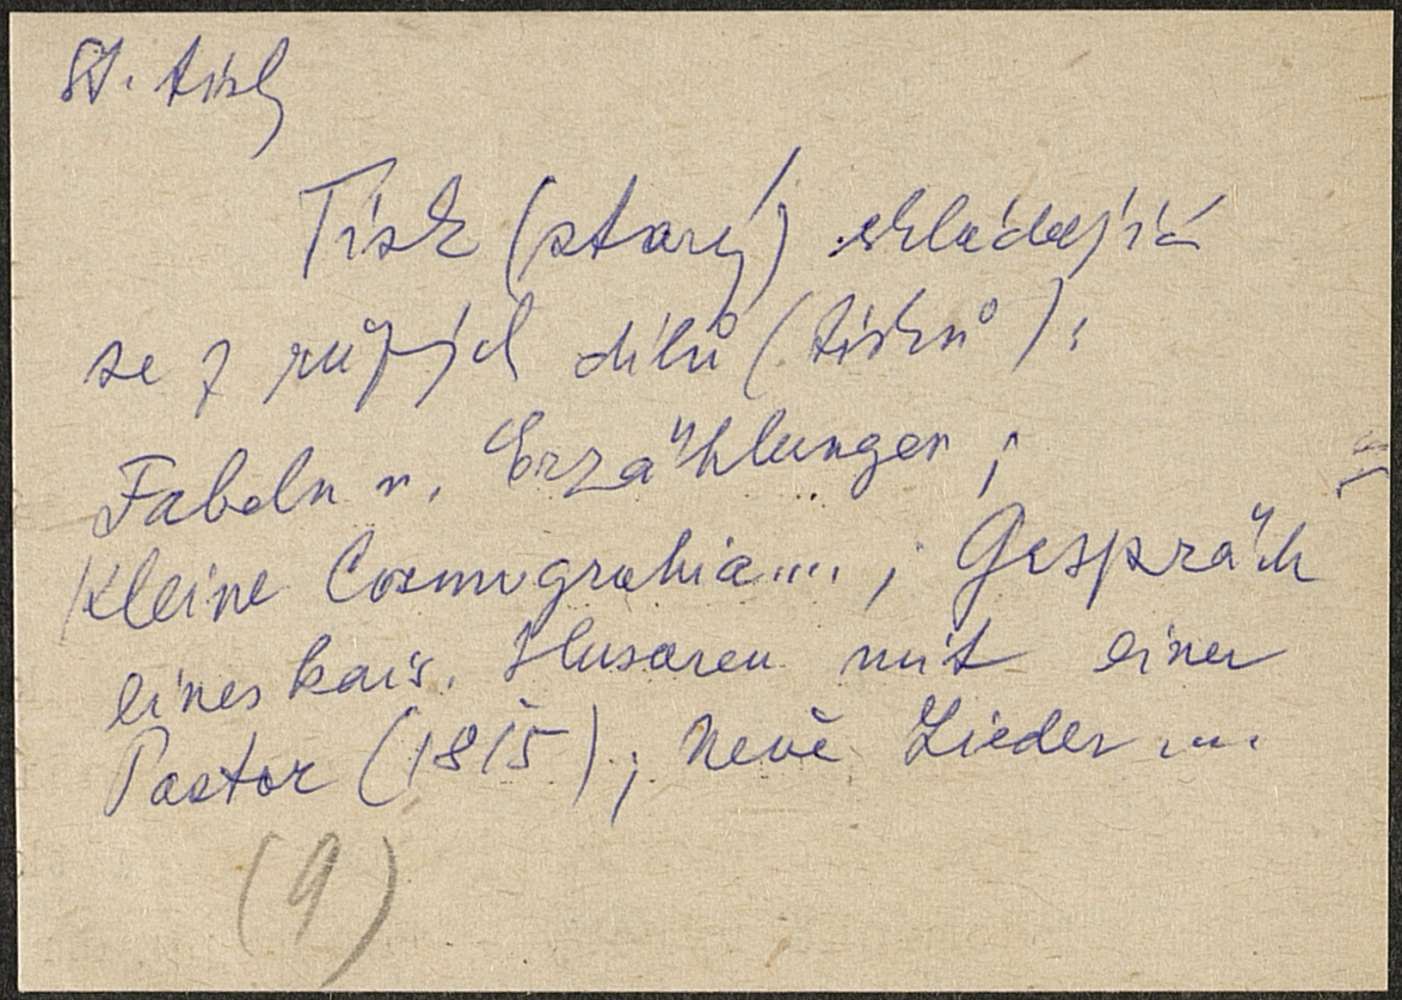 St. tisky
Tisk (starý) skládající
se z různých dílů (tisků):
Fabeln u. Erzählungen ;
Kleine Cosmograhia.... ; Gespräch
eines kais. Husaren mit einer
Pastor (1815) ; Neue Lieder ....
(9)